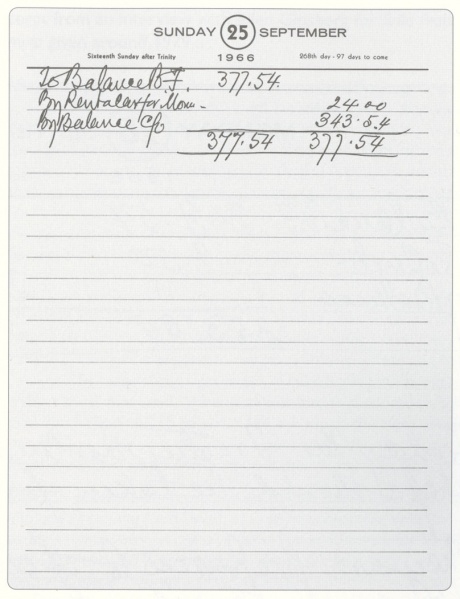 SUNDAY 25 SEPTEMBER
Sixteenth Sunday after Trinity 1966 268th day - 97 days to come
To Balance B.F. 377.54.
By Rental Car for Mom - 24.00
By Balance C/f 343.54
377.54 377.54